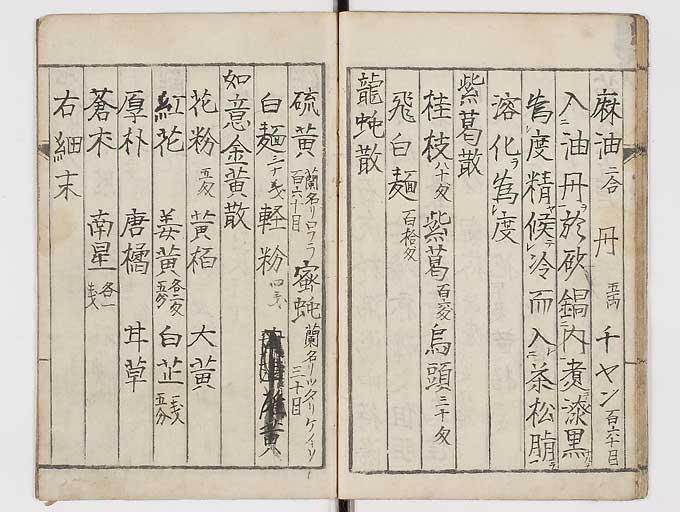 麻油二合 丹五両 チヤン百六十目
入油丹於砂鍋内煮漆黒
為度精候冷而入茶松脂
溶化為度
紫葛散
桂枝八十匁 紫葛百六匁 烏頭三十匁
飛白麺百拾匁
龍蚘散
硫黄蘭名リロフラ百六十目 蜜蚘蘭名リツタリケイソ三十目
白麺三十戋 軽粉四戋
如意金黄散
花粉五匁 黄栢 大黄
紅花 姜黄各二匁五分 白芷二戋五分
厚朴 唐橘 甘草
蒼朮 南星各一戋
右細末